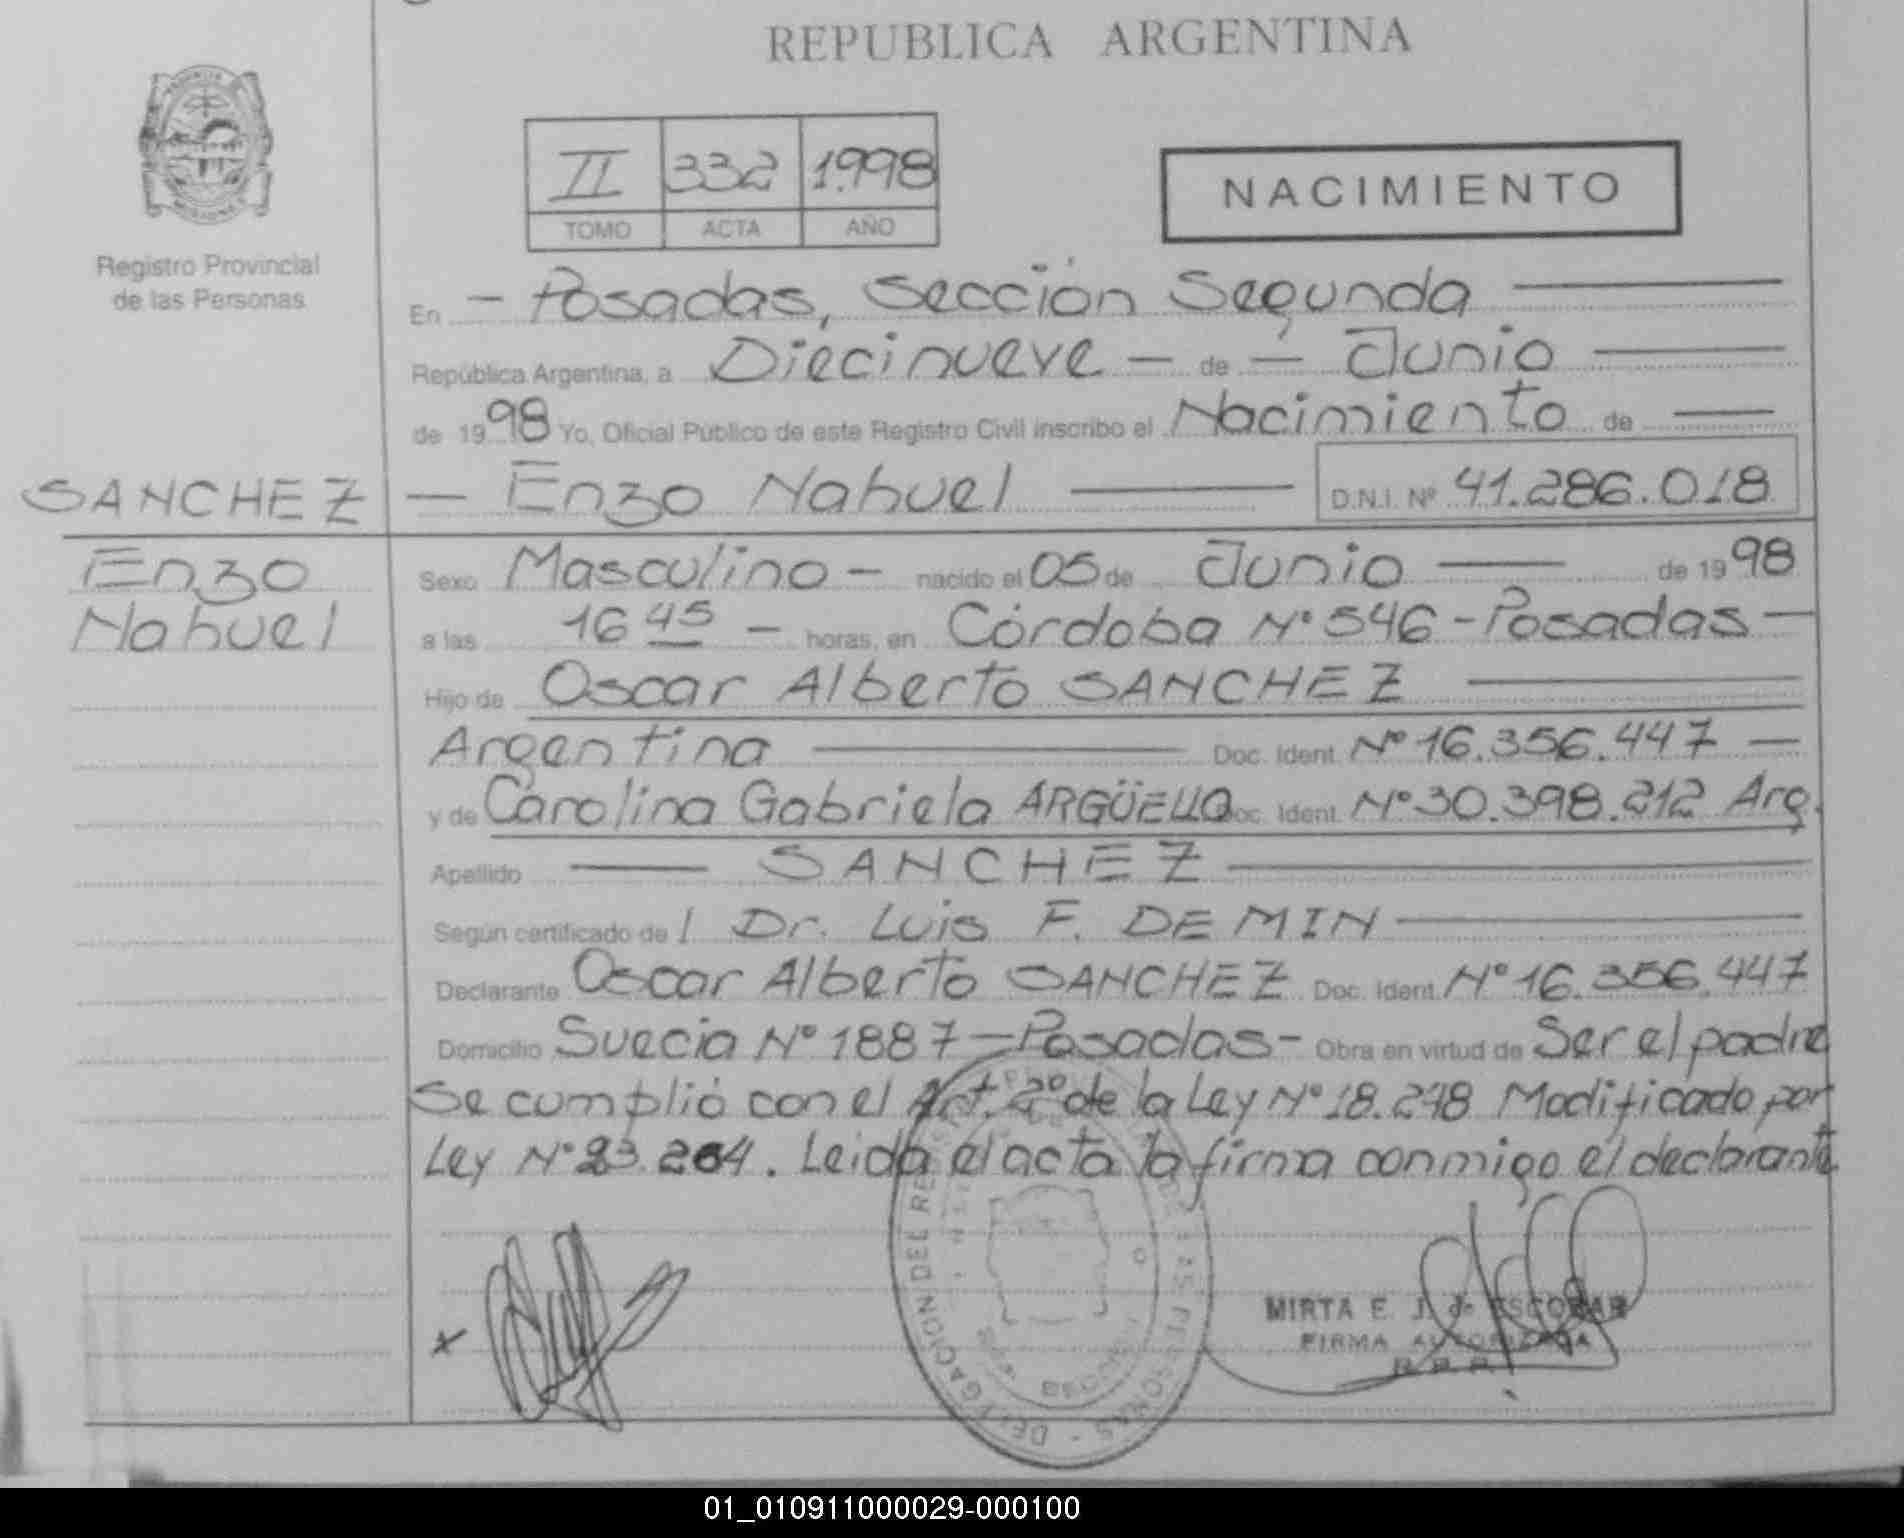 REPUBLICA ARGENTINA
II 332 1.998
TOMO ACTA AÑO
NACIMIENTO
Registro Provincial
de las Personas
En - Posadas, Sección Segunda
República Argentina, a Diecinueve - de - Junio
de 1998 Yo, Oficial Público de este Registro Civil inscribo el Nacimiento de
SANCHEZ - Enzo Nahuel D.N.I. Nº 41.286.018
Enzo
Nahuel
Sexo Masculino - nacido el 05 de Junio de 1998
a las 16 45 - horas, en Córdoba Nº 546 - Posadas -
Hijo de Oscar Alberto SANCHEZ
Argentina Doc. Ident. Nº 16.356.447 -
y de Carolina Gabriela ARGÜELLO Doc. Ident. Nº 30.398.212 Arg.
Apellido SANCHEZ
Según certificado de l Dr. Luis F. DEMIN
Declarante Oscar Alberto SANCHEZ Doc. Ident. Nº 16.356.447
Domicilio Suecia Nº 1887 - Posadas - Obra en virtud de Ser el padre
Se cumplió con el Art. 2º de la Ley Nº 18.248 Modificado por
Ley Nº 23.264. Leida el acta la firma conmigo el declarante
MIRTA E. J. de ESCOBAR
FIRMA AUTORIZADA
R.P.P.
DELEGACION DEL
01_010911000029-000100